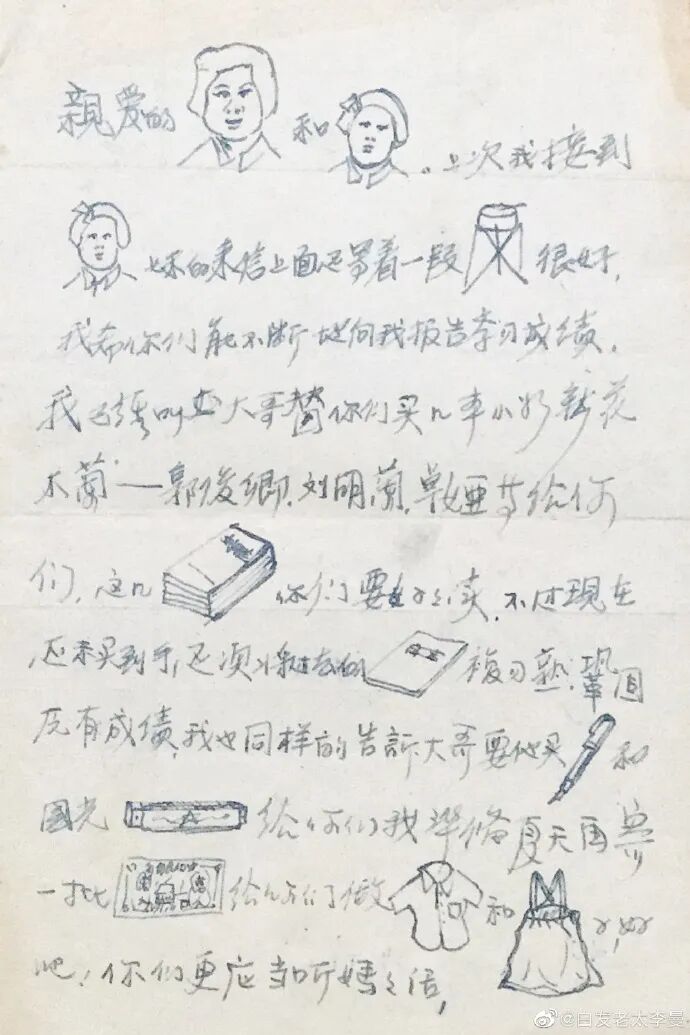 亲爱的 和 。上次我接到
妹的来信上面还写着一段 很好,
我希你们能不断地向我报告学习成绩.
我已经叫 大哥替你们买几本小 花
木蘭——郭俊卿.刘明蘭. 等给你
们,这几 你们要好好读,不过现在
还未买到手,还须将过去的 複习熟,鞏固
原有成绩,我也同样的告訴大哥要他买 和
国光 给你们我準备夏天再寄
一批 给你们做 和 ,好
吧!你们更应当听媽媽话,
@白发老太李曼